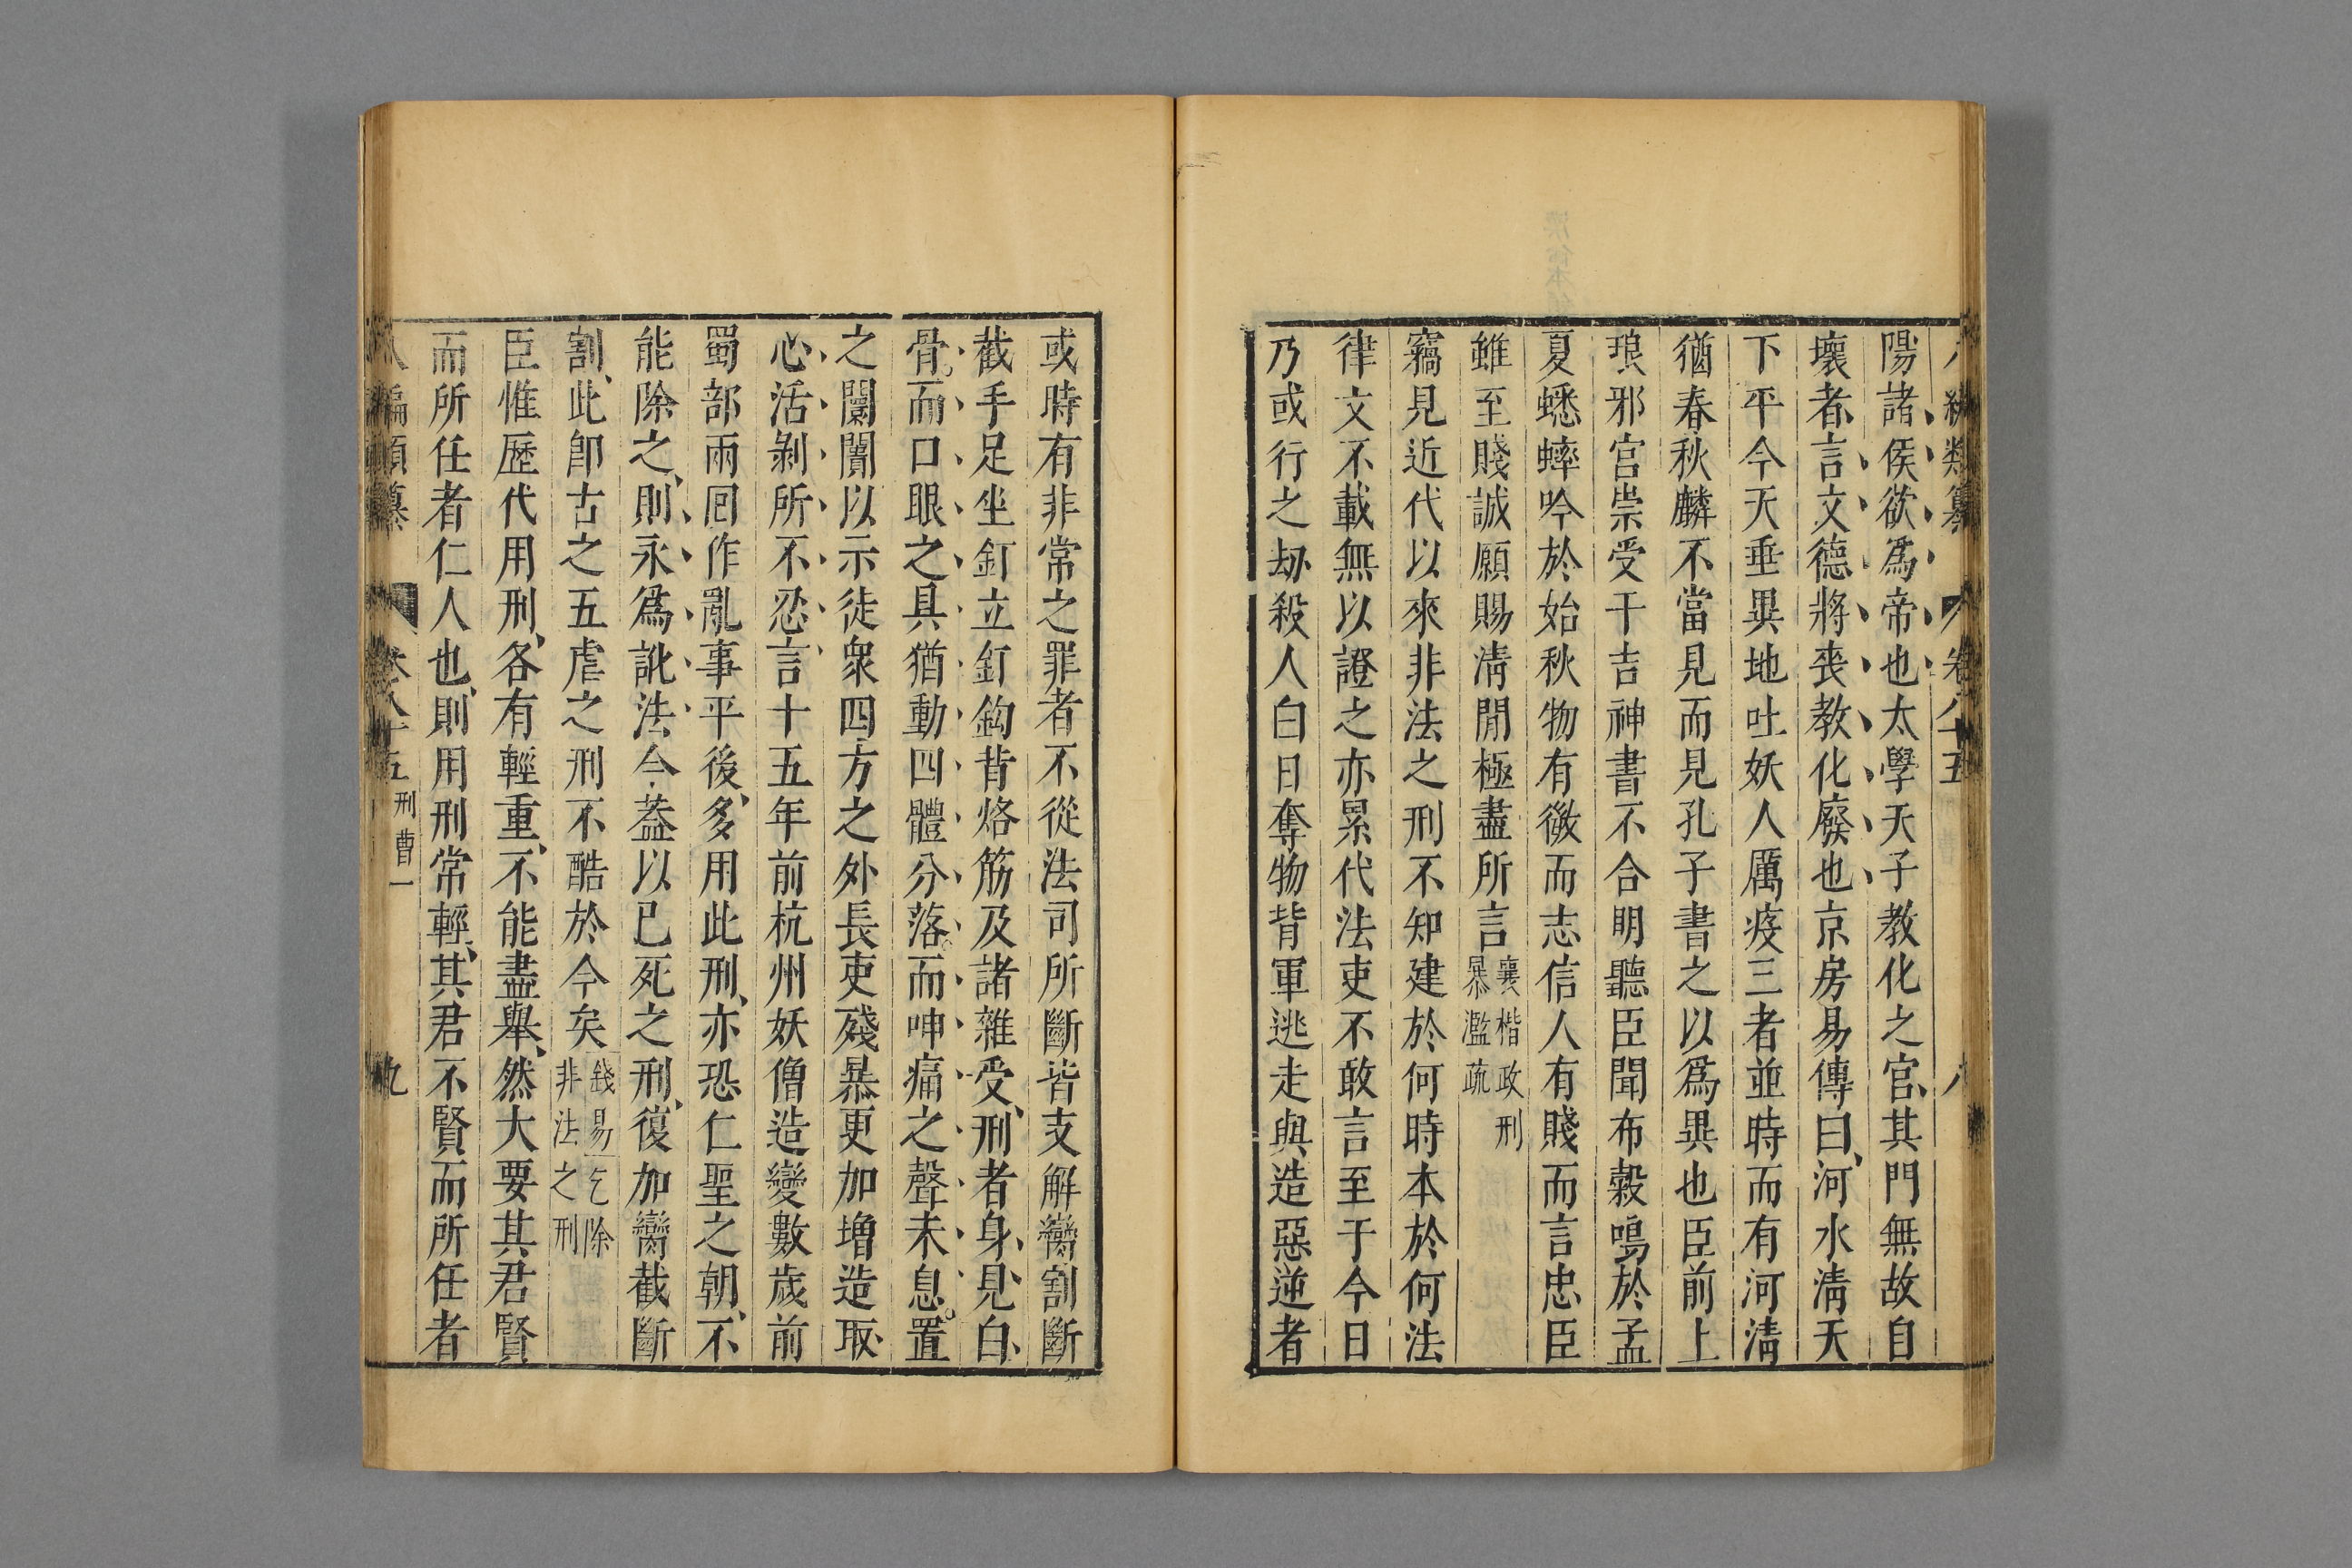 編類纂 卷八十五 八
陽諸侯欲爲帝也太學天子教化之官其門無故自
壞者言文德將喪教化廢也京房易傳曰河水清天
下平今天垂異地吐妖人厲疫三者並時而有河清
猶春秋麟不當見而見孔子書之以爲異也臣前上
琅邪宫崇受干吉神書不合明聽臣聞布穀鳴於孟
夏蟋蟀吟於始秋物有微而志信人有賤而言忠臣
雖至賤誠願賜清閒極盡所言襄楷政刑暴濫疏
竊見近代以來非法之刑不知建於何時本於何法
律文不載無以證之亦累代法吏不敢言至于今日
乃或行之劫殺人白日奪物背軍逃走與造惡逆者
或時有非常之罪者不從法司所斷皆支解臠割斷
截手足坐釘立釘鈎背烙筋及諸雜受刑者身見白
骨而口眼之具猶動四體分落而呻痛之聲未息置
之闤闠以示徒衆四方之外長吏殘暴更加增造取
心活剝所不忍言十五年前杭州妖僧造變數歲前
蜀部兩囘作亂事平後多用此刑亦恐仁聖之朝不
能除之則永爲訛法今葢以巳死之刑復加臠截斷
割此卽古之五虐之刑不酷於今矣錢易乞除非法之刑
臣惟歷代用刑各有輕重不能盡舉然大要其君賢
而所任者仁人也則用刑常輕其君不賢而所任者
八編類纂 卷八十五 刑曹一 九